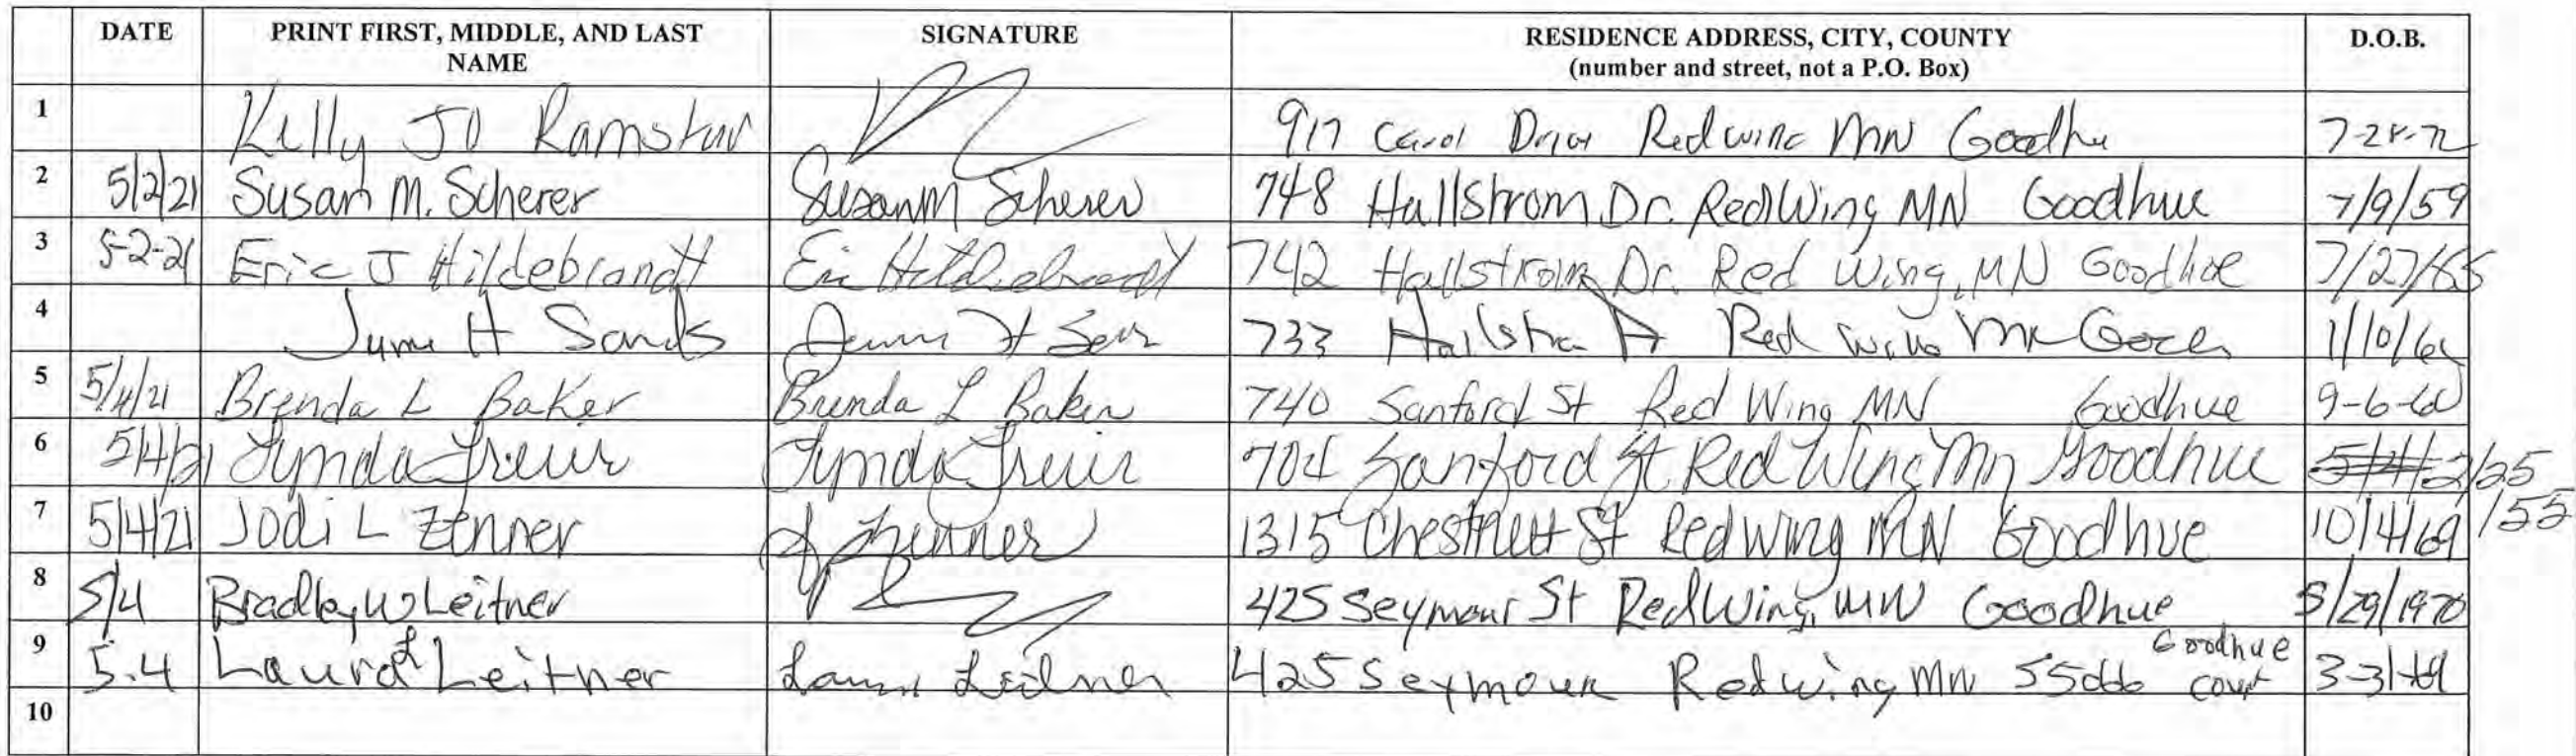 DATE PRINT FIRST, MIDDLE, AND LAST NAME SIGNATURE RESIDENCE ADDRESS, CITY, COUNTY (number and street, not a P.O. Box) D.O.B.
1 Kelly Jo 917 Carol Drive Red wing MN 7-28-72
2 5/2/21 Susan M. Scherer Susan M Scherer 748 Hallstrom Dr. Red Wing MN Goodhue 7/9/59
3 5-2-21 Eric J Hildebrandt Eric Hildebrandt 742 Hallstrom Dr. Red Wing, MN Goodhue 7/27/65
4 H Sands H 733 Red Wing MN 1/10/
5 5/4/21 Brenda L Baker Brenda L Baker 740 Sanford St Red Wing MN Goodhue 9-6-60
6 5/4/21 Lynda Lynda 704 Sanford St Red Wing Mn Goodhue 2/25/55
7 5/4/21 Jodi L Zenner J Zenner 1315 St Red Wing MN Goodhue 10/4/69
8 5/4 Bradley W Leitner 425 Seymour St Red Wing, MN Goodhue 5/29/1970
9 5.4 Laura L Leitner Laura Leitner 425 Seymour Red wing MN 55066 Goodhue 3-31-69
10